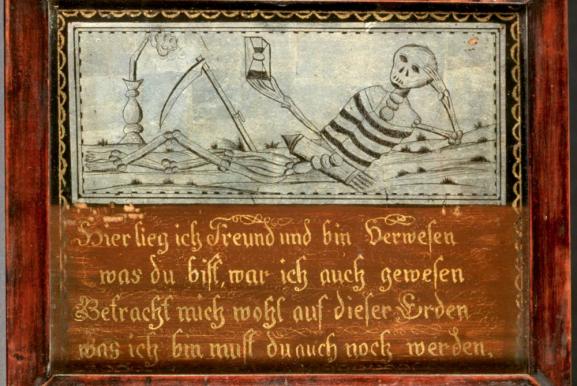 Hier lieg ich Freund und bin Verwesen
was du bist, war ich auch gewesen
Betracht mich wohl auf dieser Erden
was ich bin must du auch noch werden.